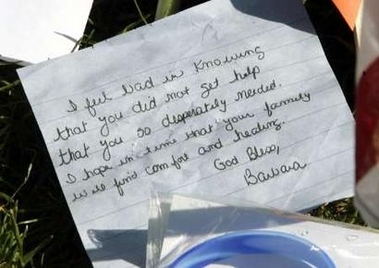 I feel bad in knowing
that you did not get help
that you so disperately needed.
I hope in time that your family
will find comfort and healing.
God Bless,
Barbara